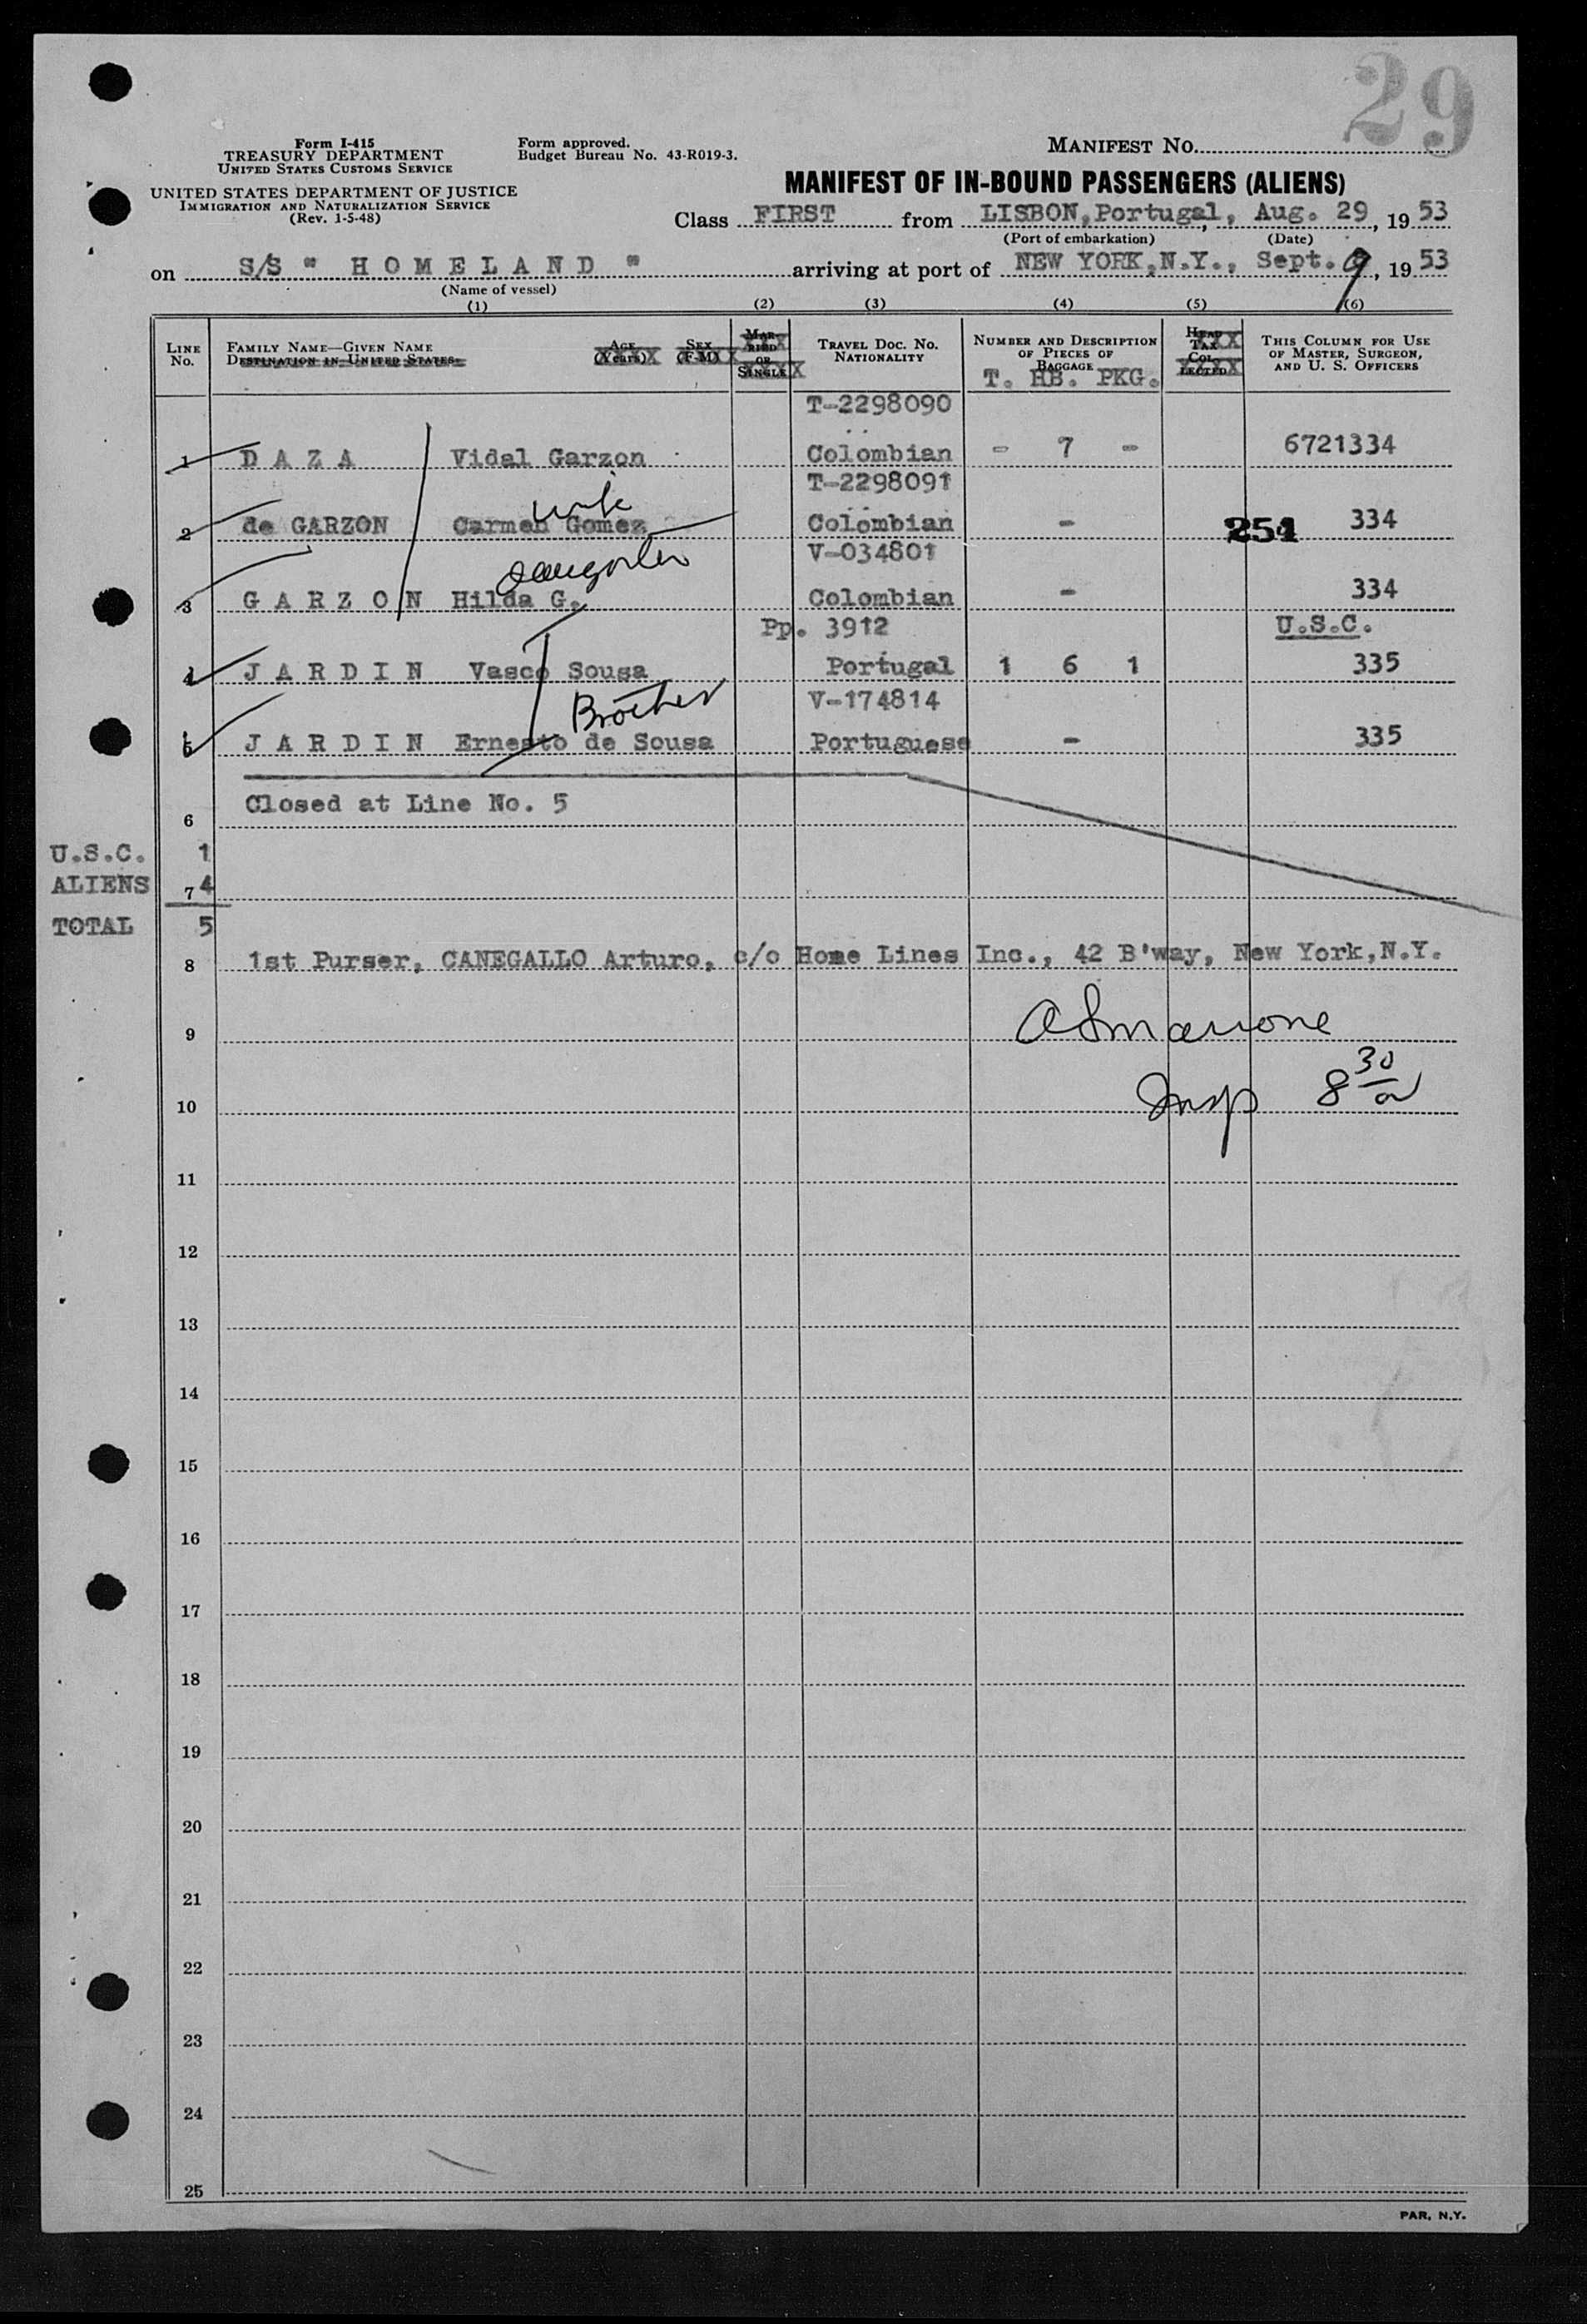 29
Form I-415
TREASURY DEPARTMENT
UNITED STATES CUSTOMS SERVICE
Form approved.
Budget Bureau No. 43-R019-3.
MANIFEST No.
UNITED STATES DEPARTMENT OF JUSTICE
IMMIGRATION AND NATURALIZATION SERVICE
(Rev. 1-5-48)
MANIFEST OF IN-BOUND PASSENGERS (ALIENS)
Class FIRST from LISBON, Portugal, Aug. 29, 19 53
(Port of embarkation) (Date)
on S/S " H O M E L A N D " arriving at port of NEW YORK, N.Y., Sept. 9, 19 53
(Name of vessel)
(1) (2) (3) (4) (5) (6)
LINE No.
FAMILY NAME—GIVEN NAME
DESTINATION IN UNITED STATES
AGE (Years) SEX (F-M)
MARRIED OR SINGLE
TRAVEL DOC. NO. NATIONALITY
NUMBER AND DESCRIPTION OF PIECES OF BAGGAGE
T. HB. PKG.
HEAD TAX COLLECTED
THIS COLUMN FOR USE OF MASTER, SURGEON, AND U. S. OFFICERS
T-2298090
1 D A Z A Vidal Garzon Colombian - 7 - 6721334
T-2298091
wife
2 de GARZON Carmen Gomez Colombian - 254 334
V-034801
daughter
3 G A R Z O N Hilda G. Colombian - 334
Pp. 3912 U.S.C.
4 J A R D I N Vasco Sousa Portugal 1 6 1 335
V-174814
Brother
5 J A R D I N Ernesto de Sousa Portuguese - 335
6 Closed at Line No. 5
U.S.C. 1
ALIENS 4
7
TOTAL 5
8 1st Purser, CANEGALLO Arturo, c/o Home Lines Inc., 42 B'way, New York, N.Y.
9
10 Insp 8 30
11
12
13
14
15
16
17
18
19
20
21
22
23
24
25
PAR, N.Y.